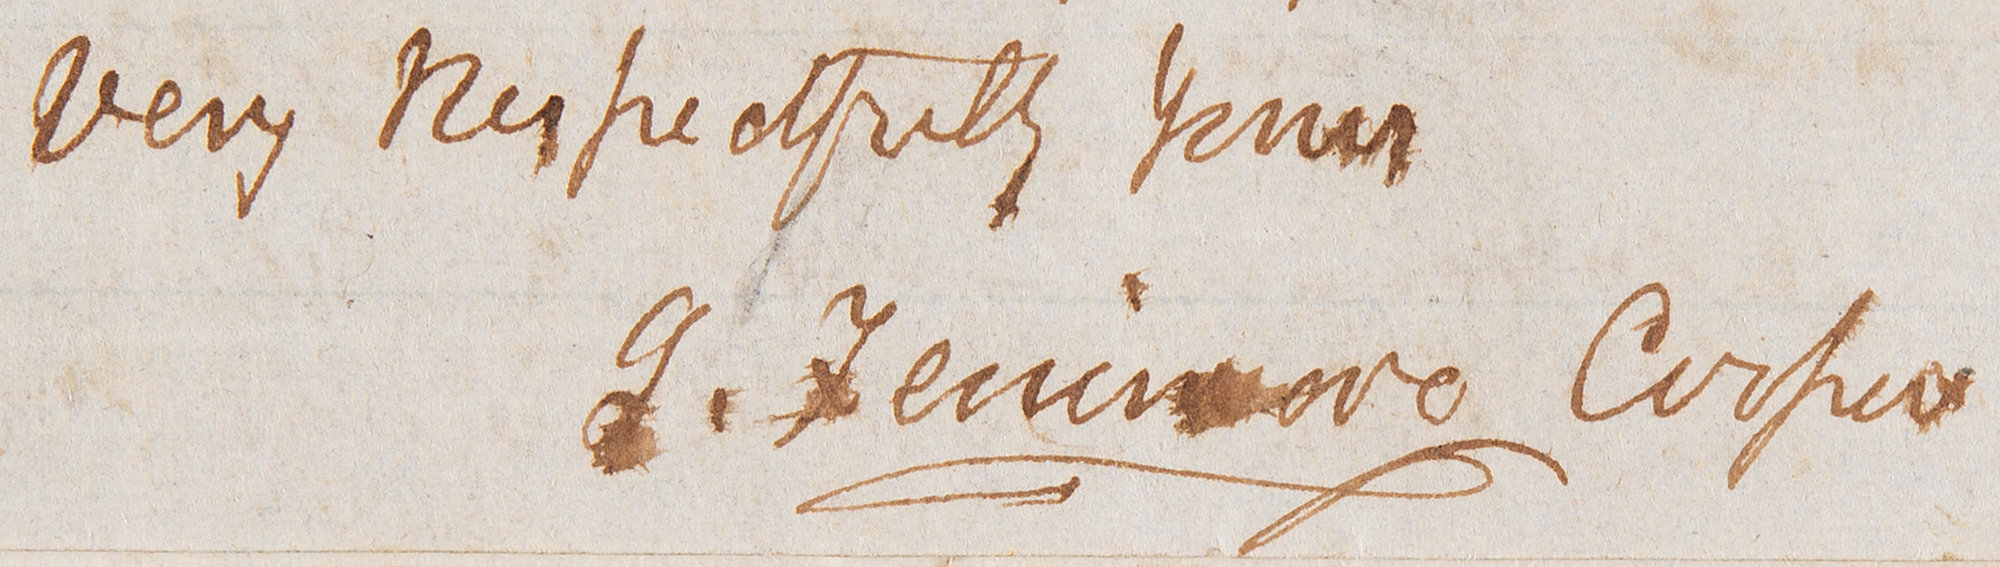 Very Respectfully Yours
J. Fenimore Cooper